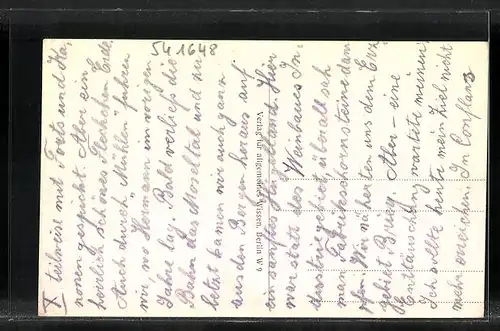 541648
X teilweise mit Forts und Ka-
nonen gespickt. Aber ein
herrlich schönes Fleckchen Erde.
Auch durch "Mühlen" fuhren
wir, wo Hermann im vorigen
Jahre lag. Bald verließ die
Bahn das Moseltal und zu-
letzt kamen wir auch ganz
aus den Bergen heraus auf
ein sanftes Hügelland. Hier
war statt des Weinbaues In-
dustriegebiet, überall sah
man Fabrikschornsteine dam-
pfen. Wir näherten uns dem Erz-
gebiet Briey. Aber - eine
Enttäuschung wartete meiner,
Ich sollte heute mein Ziel nicht
mehr erreichen. In Conflans
Verlag für allgemeines Wissen, Berlin W 9